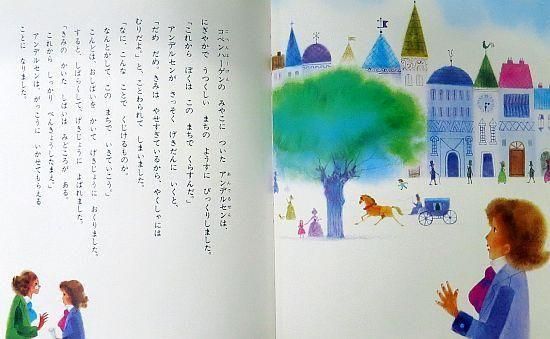 コペンハーゲンの みやこに ついた アンデルセンは、
にぎやかで うつくしい まちの ようすに びっくりしました。
「これから ぼくは この まちで くらすんだ。」
アンデルセンが さっそく げきだんに いくと、
「だめ だめ。きみは やせすぎているから、やくしゃには
むりだよ。」と、ことわられて しまいました。
「なに、こんな ことで くじけるものか。
なんとかして この まちで いきていこう。」
こんどは、おしばいを かいて げきじょうに おくりました。
すると、しばらくして、げきじょうに よばれました。
「きみの かいた しばいは みどころが ある。
これから しっかり べんきょうしたまえ。」
アンデルセンは、がっこうに いかせてもらえる
ことに なりました。